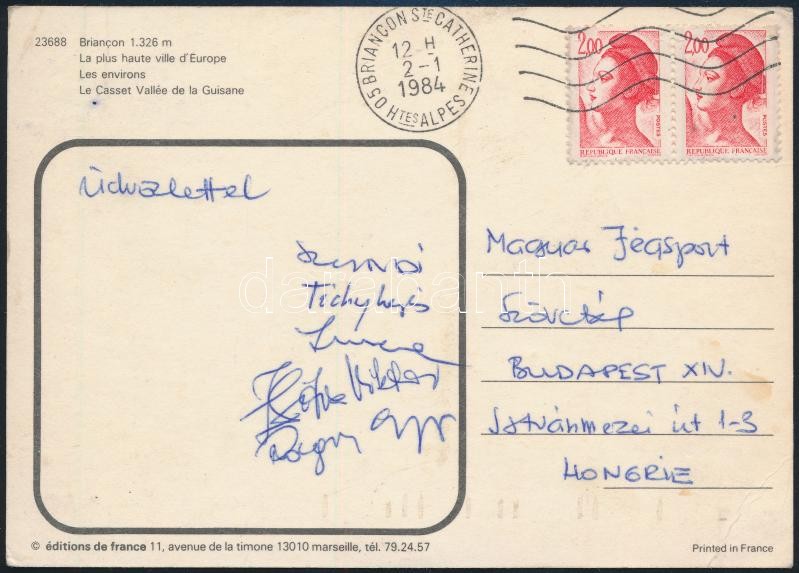 23688 Briançon 1.326 m
La plus haute ville d'Europe
Les environs
Le Casset Vallée de la Guisane
05 BRIANÇON STE CATHERINE
12 H
2-1
1984
HTES ALPES
2,00
POSTES
REPUBLIQUE FRANÇAISE
2,00
POSTES
REPUBLIQUE FRANÇAISE
Üdvözlettel
Magyar Jégsport
Szövetség
BUDAPEST XIV.
Istvánmezei út 1-3
HONGRIE
Viktor
darabanth
© éditions de france 11, avenue de la timone 13010 marseille, tél. 79.24.57
Printed in France